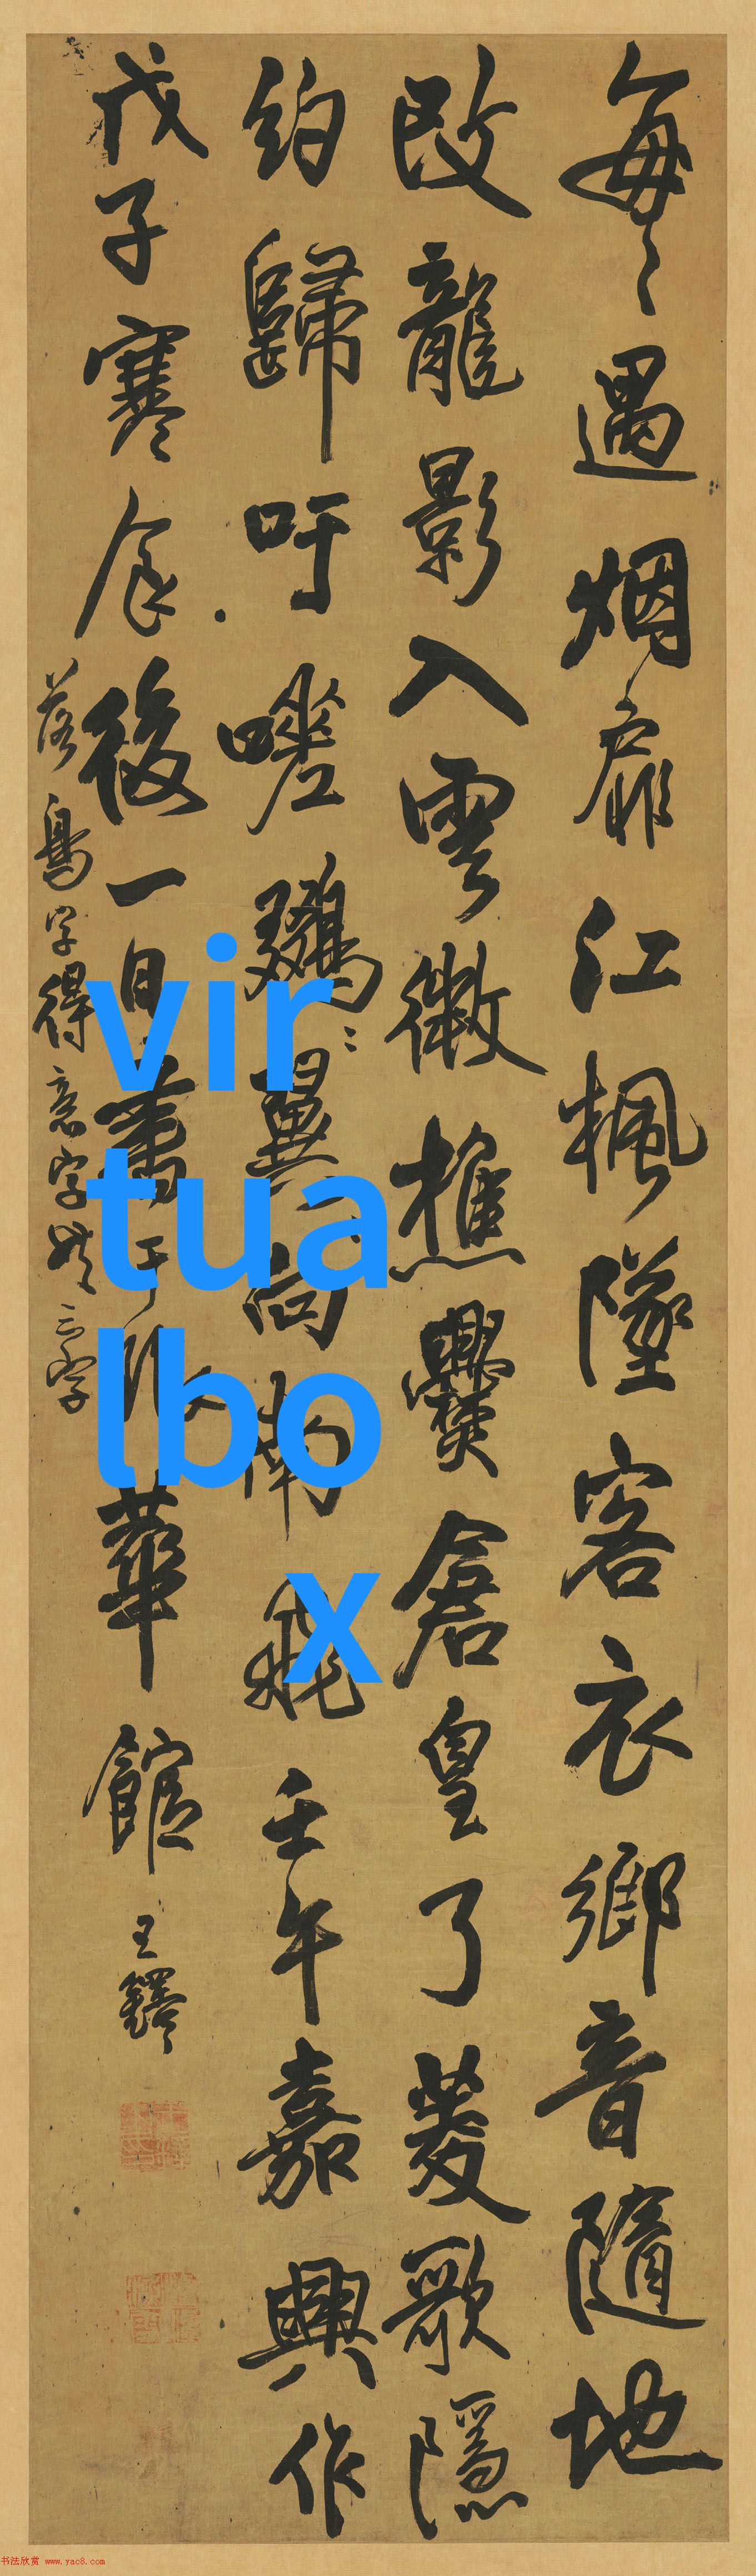 每〻遇烟扉江楓墜客衣鄉音隨地
改龍影入雲微樵爨倉皇了菱歌隱
約歸吁嗟〻翼向南飛壬午嘉興作
戊子寒食後一日書于琅華館 王鐸
落鳥字得意字共三字
vir
tua
lbo
x
书法欣赏 www.yac8.com